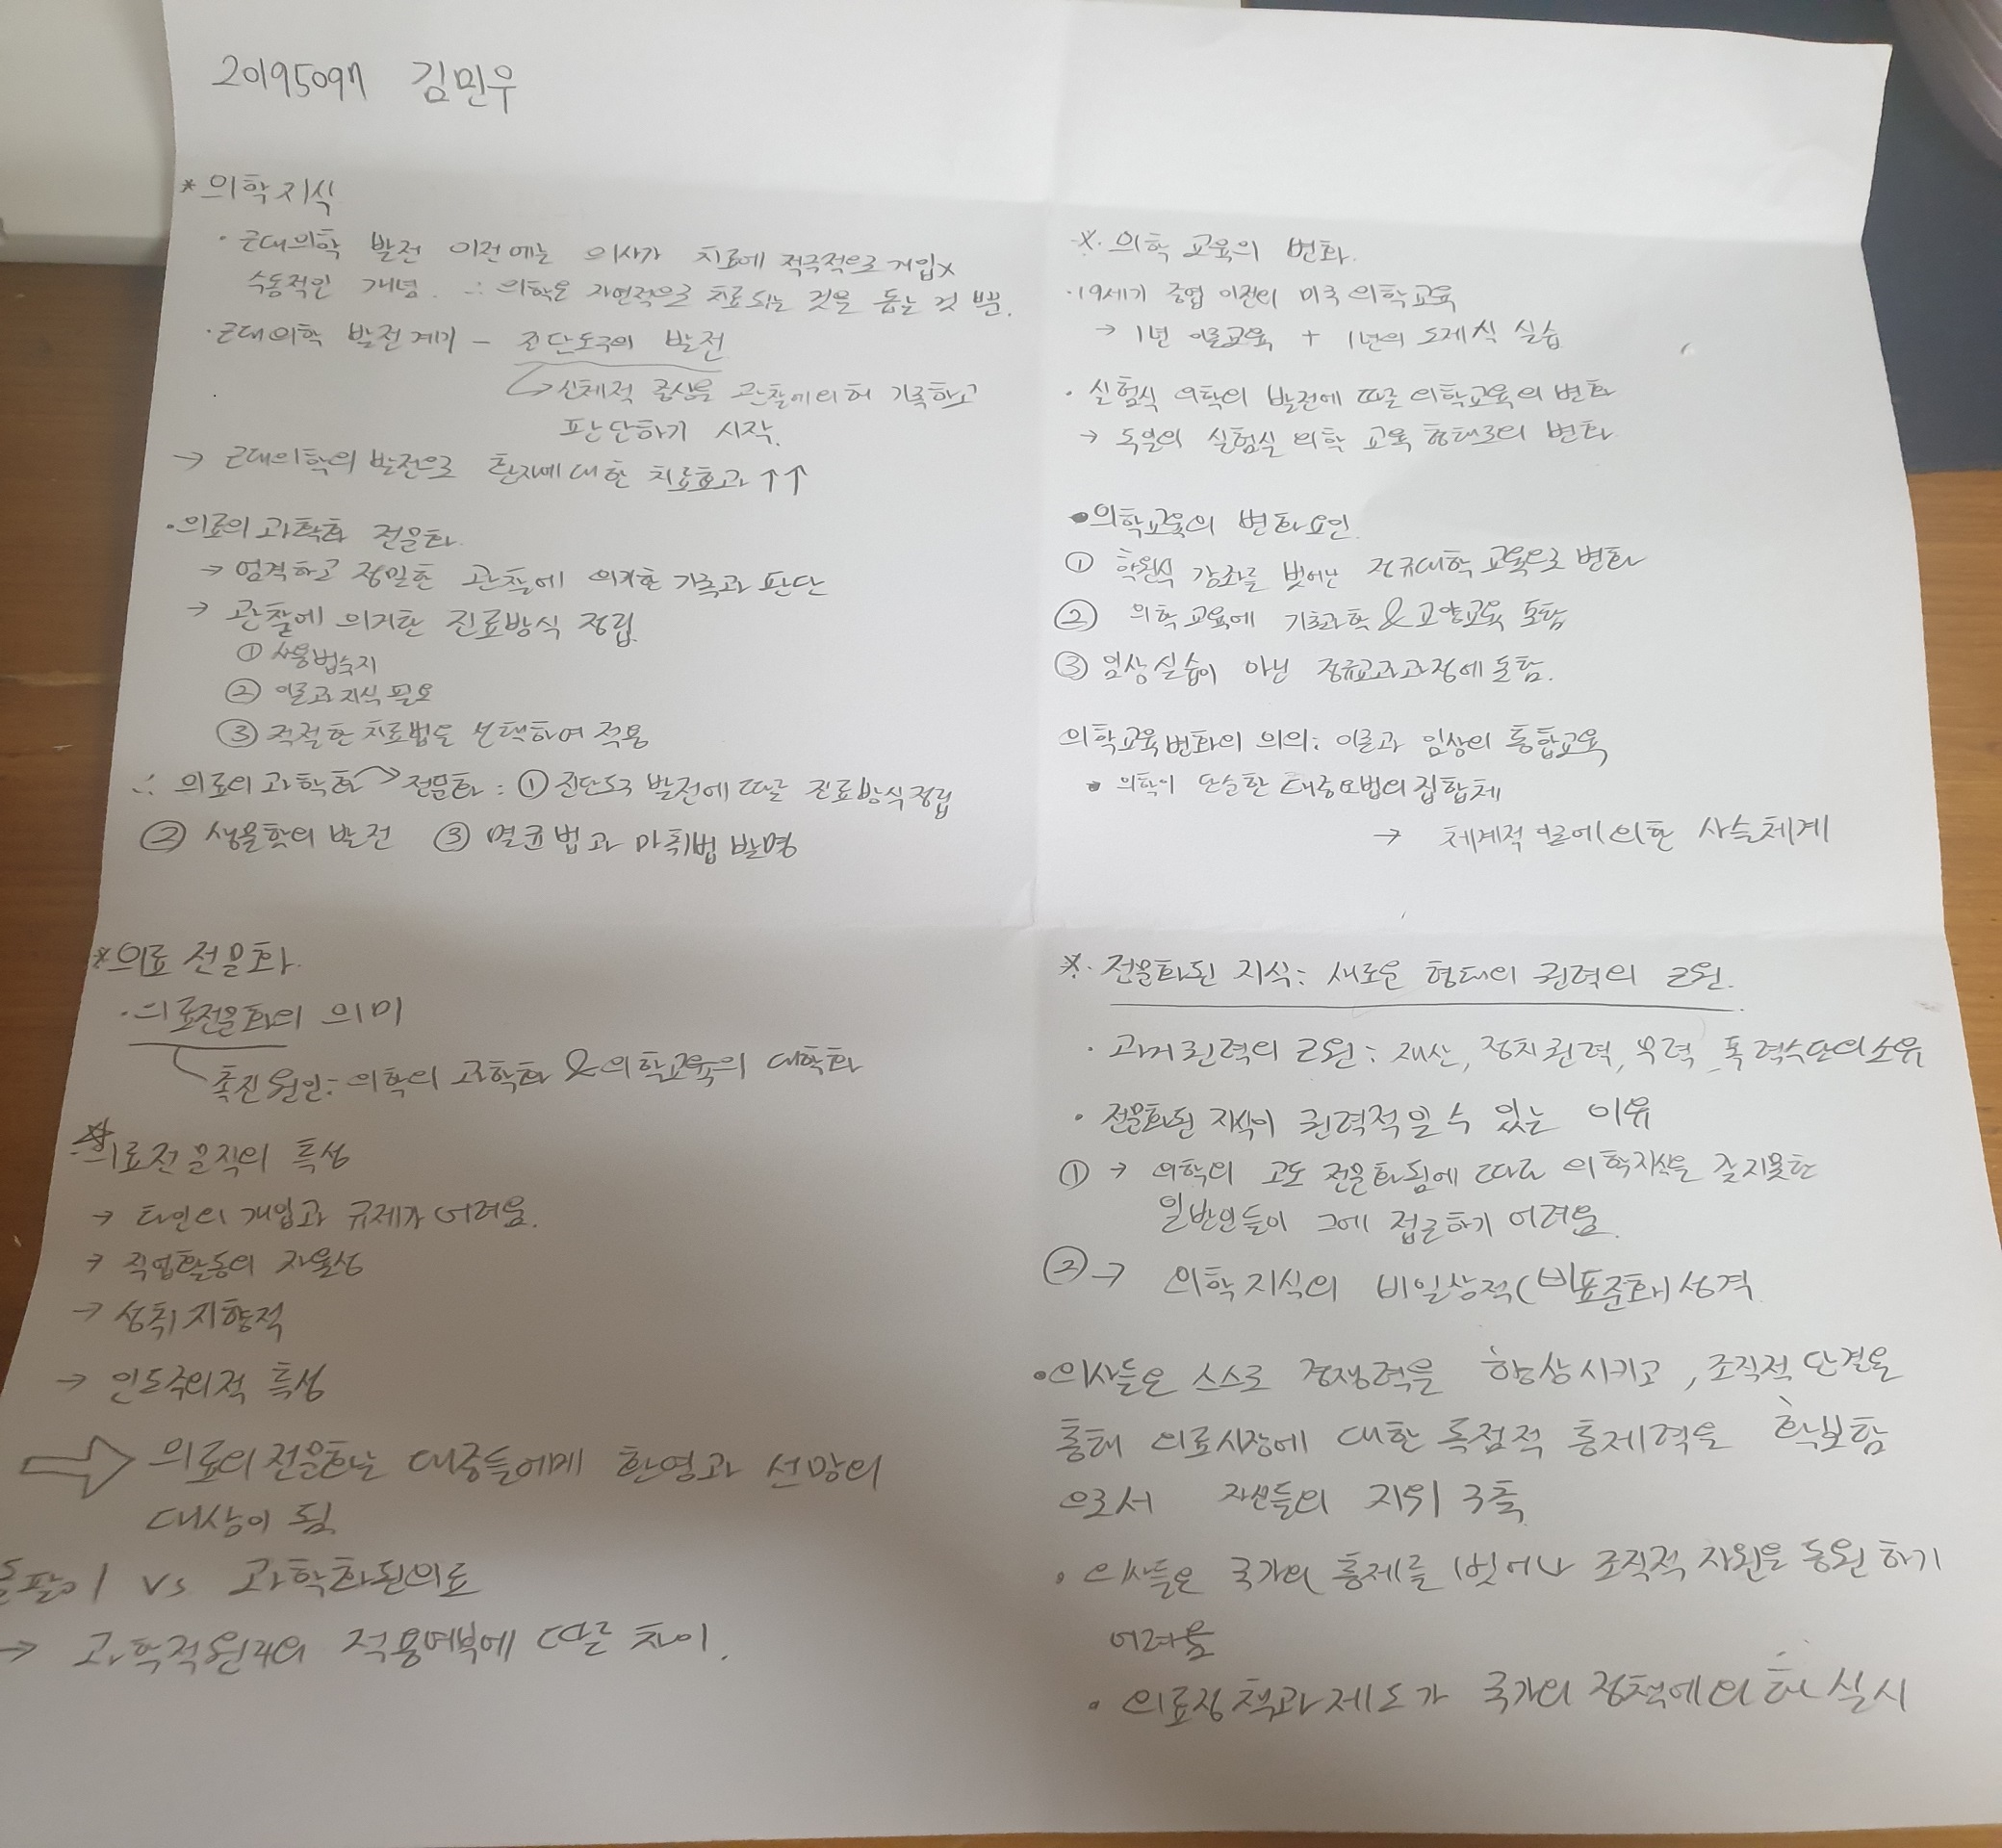 20195097 김민우
* 의학지식
· 근대의학 발전 이전에는 의사가 치료에 적극적으로 개입x
수동적인 개념. ∴ 의학은 자연적으로 치료되는 것을 돕는 것 뿐.
· 근대의학 발전계기 - 진단도구의 발전
↳ 신체적 증상을 관찰에의해 기록하고
판단하기 시작.
→ 근대의학의 발전으로 환자에 대한 치료효과 ↑↑
· 의료의 과학화 전문화
→ 엄격하고 정밀한 관찰에 의거한 기록과 판단
→ 관찰에 의거한 진료방식 정립
① 사용법숙지
② 이론과 지식 필요
③ 적절한 치료법을 선택하여 적용
∴ 의료의 과학화 → 전문화 : ① 진단도구 발전에 따른 진료방식정립
② 생물학의 발전 ③ 멸균법과 마취법 발명
* 의료 전문화
· 의료전문화의 의미
촉진원인: 의학의 과학화 & 의학교육의 대학화
의료전문직의 특성
→ 타인의 개입과 규제가 어려움.
→ 직업활동의 자율성
→ 성취지향적
→ 인도주의적 특성
⇒ 의료의 전문화는 대중들에게 환영과 선망의
대상이 됨
돌팔이 vs 과학화된의료
→ 과학적원리의 적용여부에 따른 차이.
※· 의학 교육의 변화.
· 19세기 중엽 이전의 미국 의학교육
→ 1년 이론교육 + 1년의 도제식 실습
· 실험식 의학의 발전에 따른 의학교육의 변화
→ 독일의 실험식 의학 교육 형태로의 변화
• 의학교육의 변화요인.
① 학원식 강좌를 벗어난 정규대학 교육으로 변화
② 의학 교육에 기초과학 & 교양교육 포함
③ 임상실습이 아닌 정규교과과정에 포함.
의학교육변화의 의의: 이론과 임상의 통합교육
• 의학이 단순한 대증요법의 집합체
→ 체계적 이론에 의한 사슬체계
※· 전문화된 지식: 새로운 형태의 권력의 근원.
· 과거 권력의 근원: 재산, 정치권력, 무력, 폭력수단의 소유
· 전문화된 지식이 권력적일 수 있는 이유
① → 의학의 고도 전문화됨에 따라 의학지식을 갖지못한
일반인들이 그에 접근하기 어려움.
② → 의학 지식의 비일상적(비표준화) 성격
• 의사들은 스스로 경쟁력을 향상시키고, 조직적 단결을
통해 의료시장에 대한 독점적 통제력을 확보함
으로서 자신들의 지위 구축
· 의사들은 국가의 통제를 벗어나 조직적 자원을 동원 하기
어려움
· 의료정책과 제도가 국가의 정책에 의해 실시